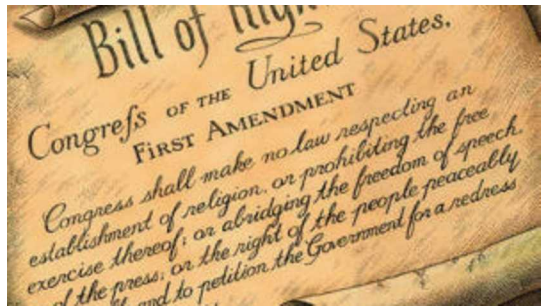 Bill of Rights
Congreſs OF THE United States.
FIRST AMENDMENT
Congress shall make no law respecting an
establishment of religion, or prohibiting the free
exercise thereof; or abridging the freedom of speech,
of the press; or the right of the people peaceably
and to petition the Government for a redress